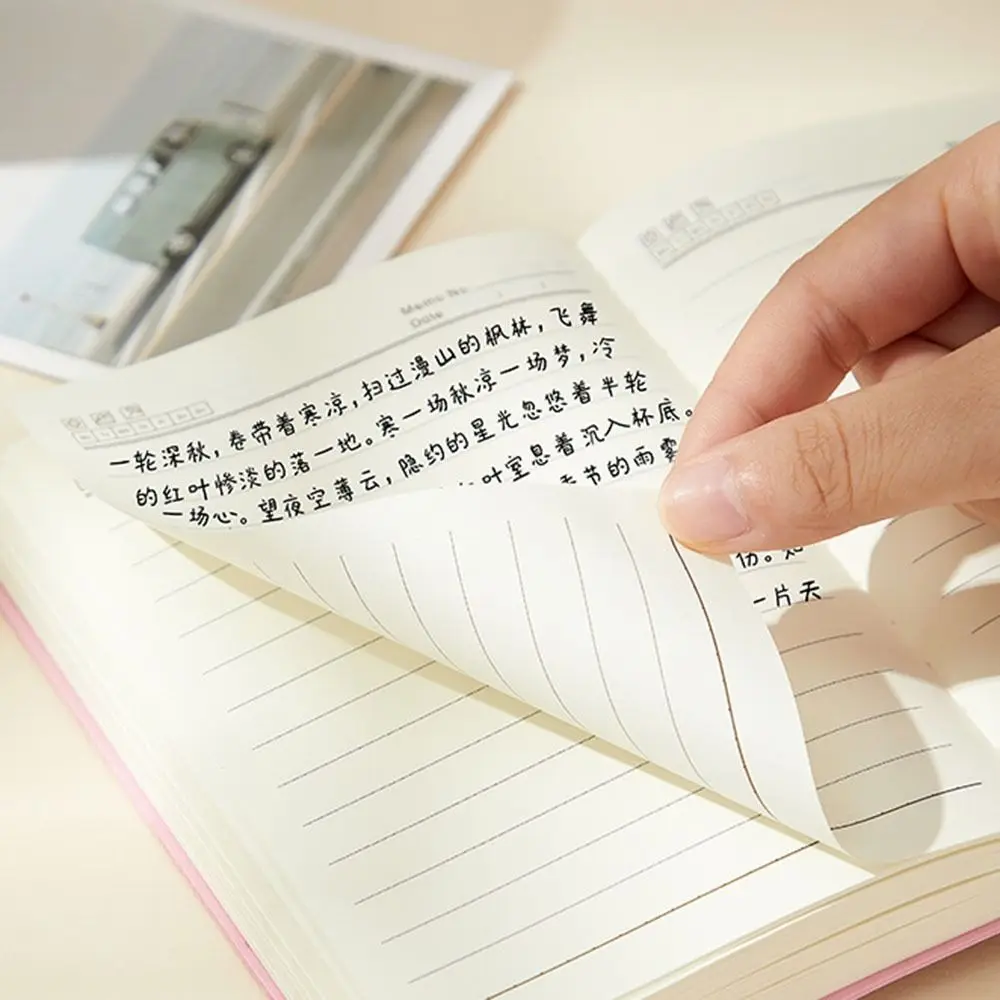 Memo No.
Date
一轮深秋，卷带着寒凉，扫过漫山的枫林，飞舞
的红叶惨淡的落一地。寒一场秋凉一场梦，冷
一场心。望夜空薄云，隐约的星光忽悠着半轮
叶室息着沉入杯底。
节的雨雾
伤。
一片天